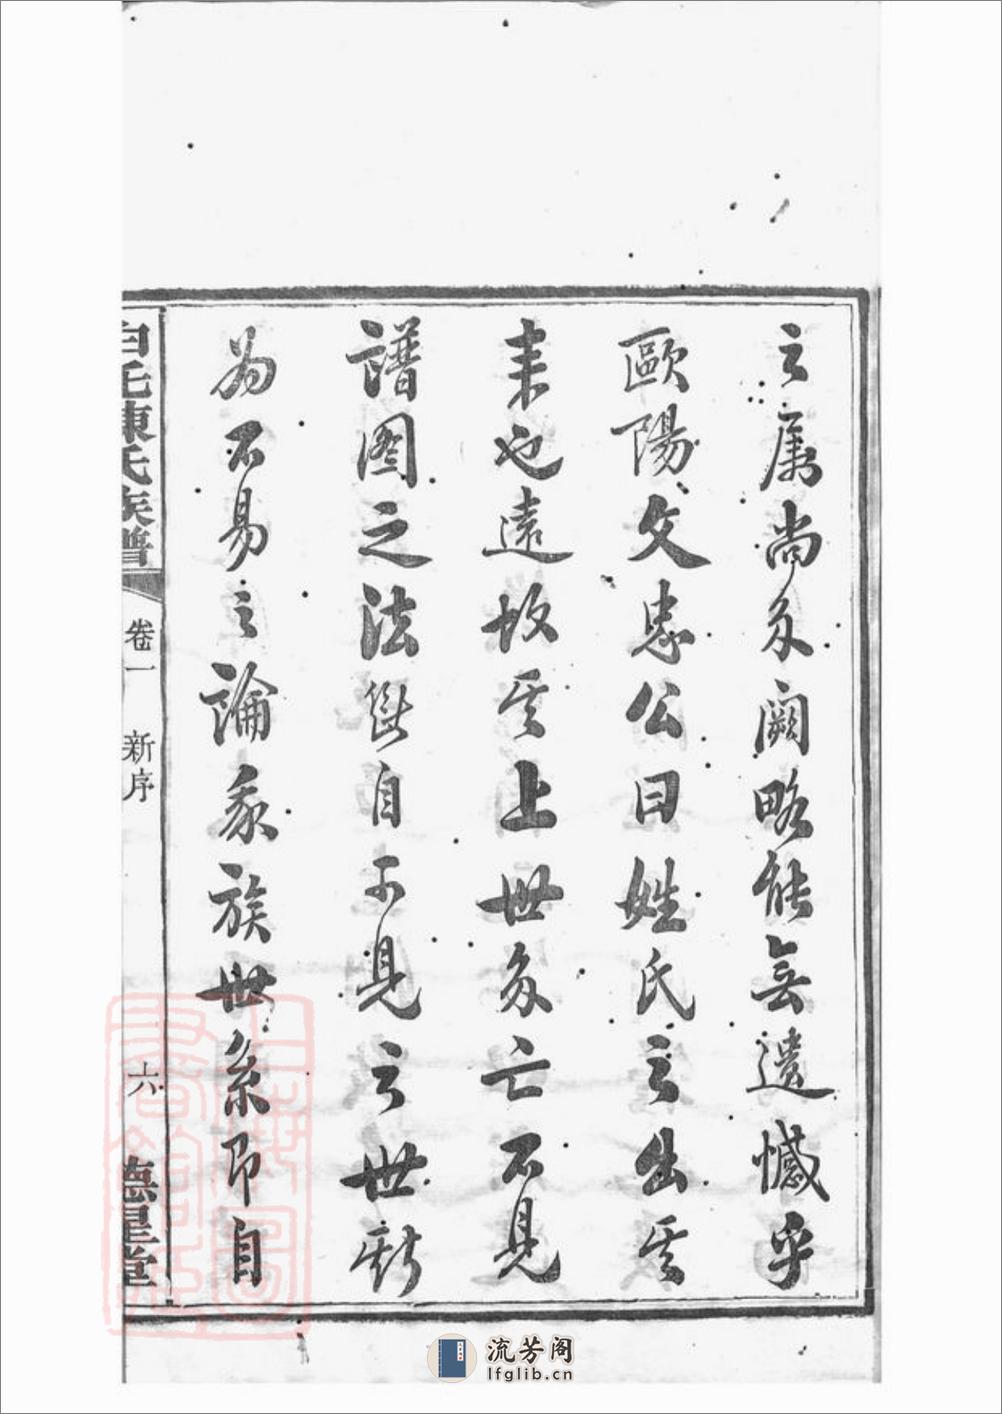 之属尚多闕略能無遺憾乎
歐陽文忠公曰姓氏之出其
来也遠故其上世多亡不見
譜圖之法斷自可見之世斯
為不易之論我族世系即自
陳氏族譜
卷一 新序
六
德星堂
流芳阁
lfglib.cn